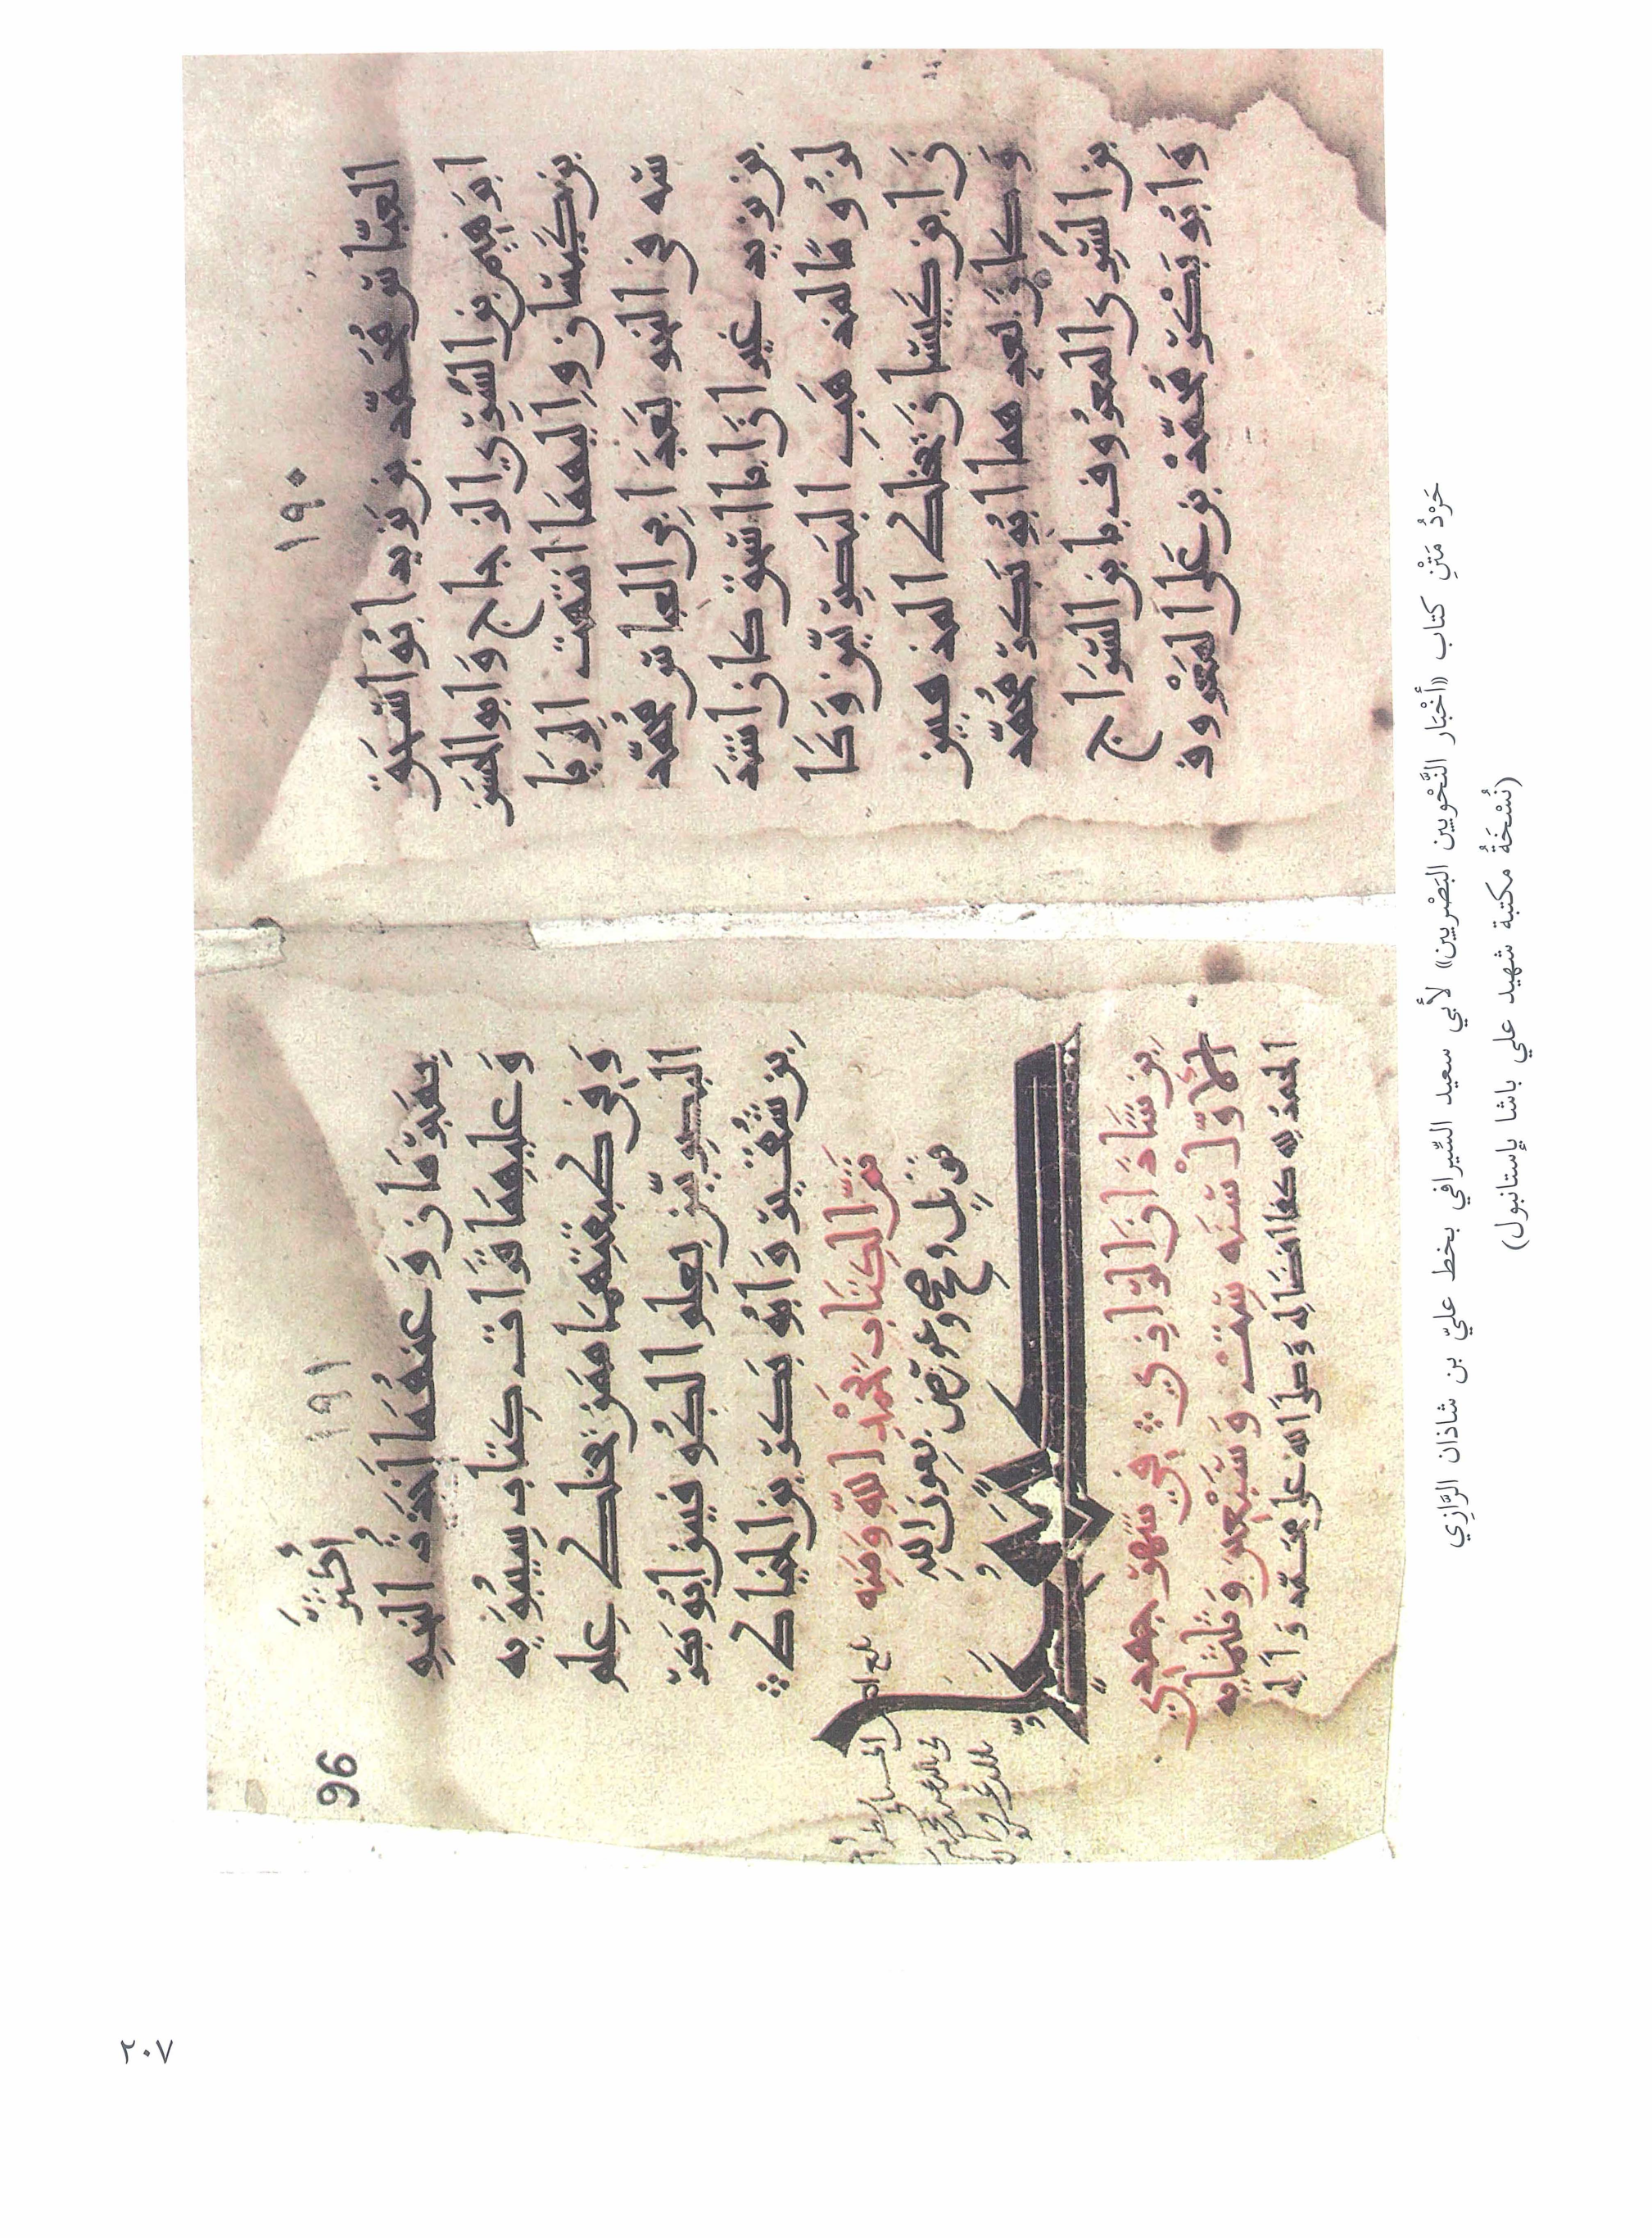 ١٩٠
العباس محمد بن يزيد ابو اسحق
ابرهيم بن السري الزجاج وابو الحسن
بن كيسان واليهما انتهت الريا
سه في النحو بعد ابي العباس محمد
بن يزيد غير ان ابا اسحق كان اشد
لزوما لمذهب البصريين وكا
ن ابن كيسان يخلط المذهبين
وكان بعدهما ابو بكر محمد
بن السري المعروف بابن السراج
وابو بكر محمد بن علي المعروف
96
١٩١
بمبرمان وعنهما اخذت النحو
وعليهما قرات كتاب سيبويه
وفي طبقتهما ممن يخلط علم
البصريين بعلم الكوفيين ابو بكر
بن شقير وابو بكر بن الخياط
تم الكتاب بحمد الله ومنه
قوبل وصحح وعورض بعون الله
وكتب علي
بن شاذان الرازي في شهر جمدي
الاول سنه ست وسبعين وثلثمايه
الحمد لله كفا افضاله وصلى الله على محمد واله
حَرْدُ مَتْنِ كتاب «أخْبَار النَّحْويين البَصْريين» لأبي سعيد السِّيرافي بخط عليّ بن شاذان الرَّازِي
(نُسْخَةُ مكتبة شهيد علي باشا بإستانبول)
٢٠٧